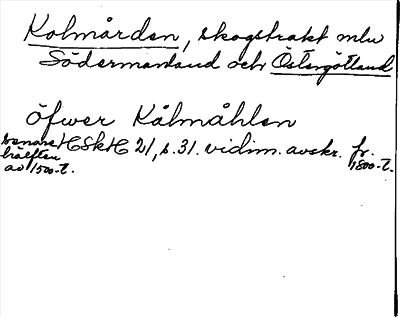 Kolmården, skogstrakt mlu
Södermanland och Östergötland
öfwer Kålmåhlen
senare hälften av 1500-t. HSkH 21, s. 31. vidim. avskr. fr. 1800-t.